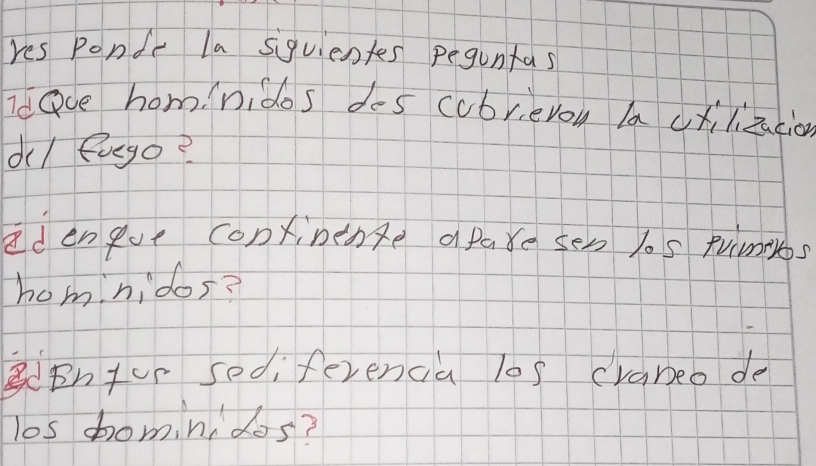 res Ponde la siguientes peguntas
1¿Que homínidos des cubrieron la utilizacion
del fuego?
2¿ enque continente aparesen los primeros
homínidos?
3¿En que sediferencia los craneo de
los homínidos?